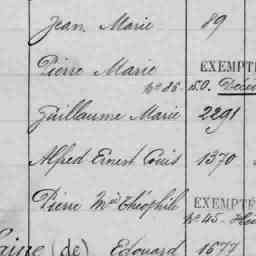 Jean Marie 89
Pierre Marie EXEMPTÉ
no 86. 150.
Guillaume Marie 2291
Alfred Ernest Louis 1370
Pierre Mie Théophile EXEMPTÉ
No 45.
(de) Edouard 1677